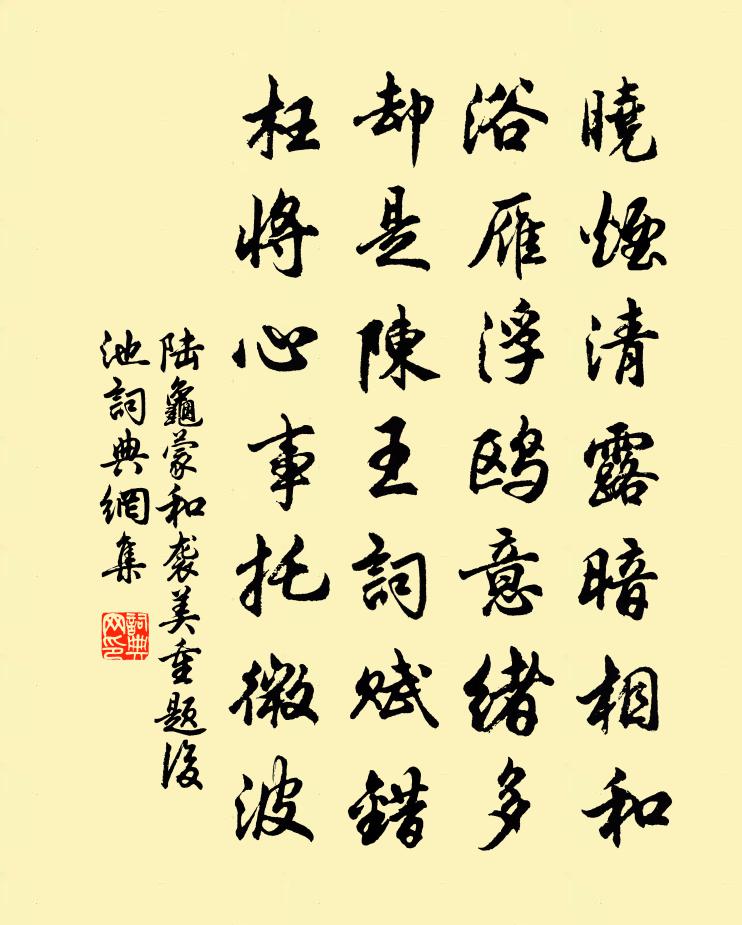 曉煙清露暗相和
浴雁浮鸥意緒多
却是陳王詞賦錯
枉將心事托微波
陆龜蒙和袭美重题後
池詞典網集
詞典
网印